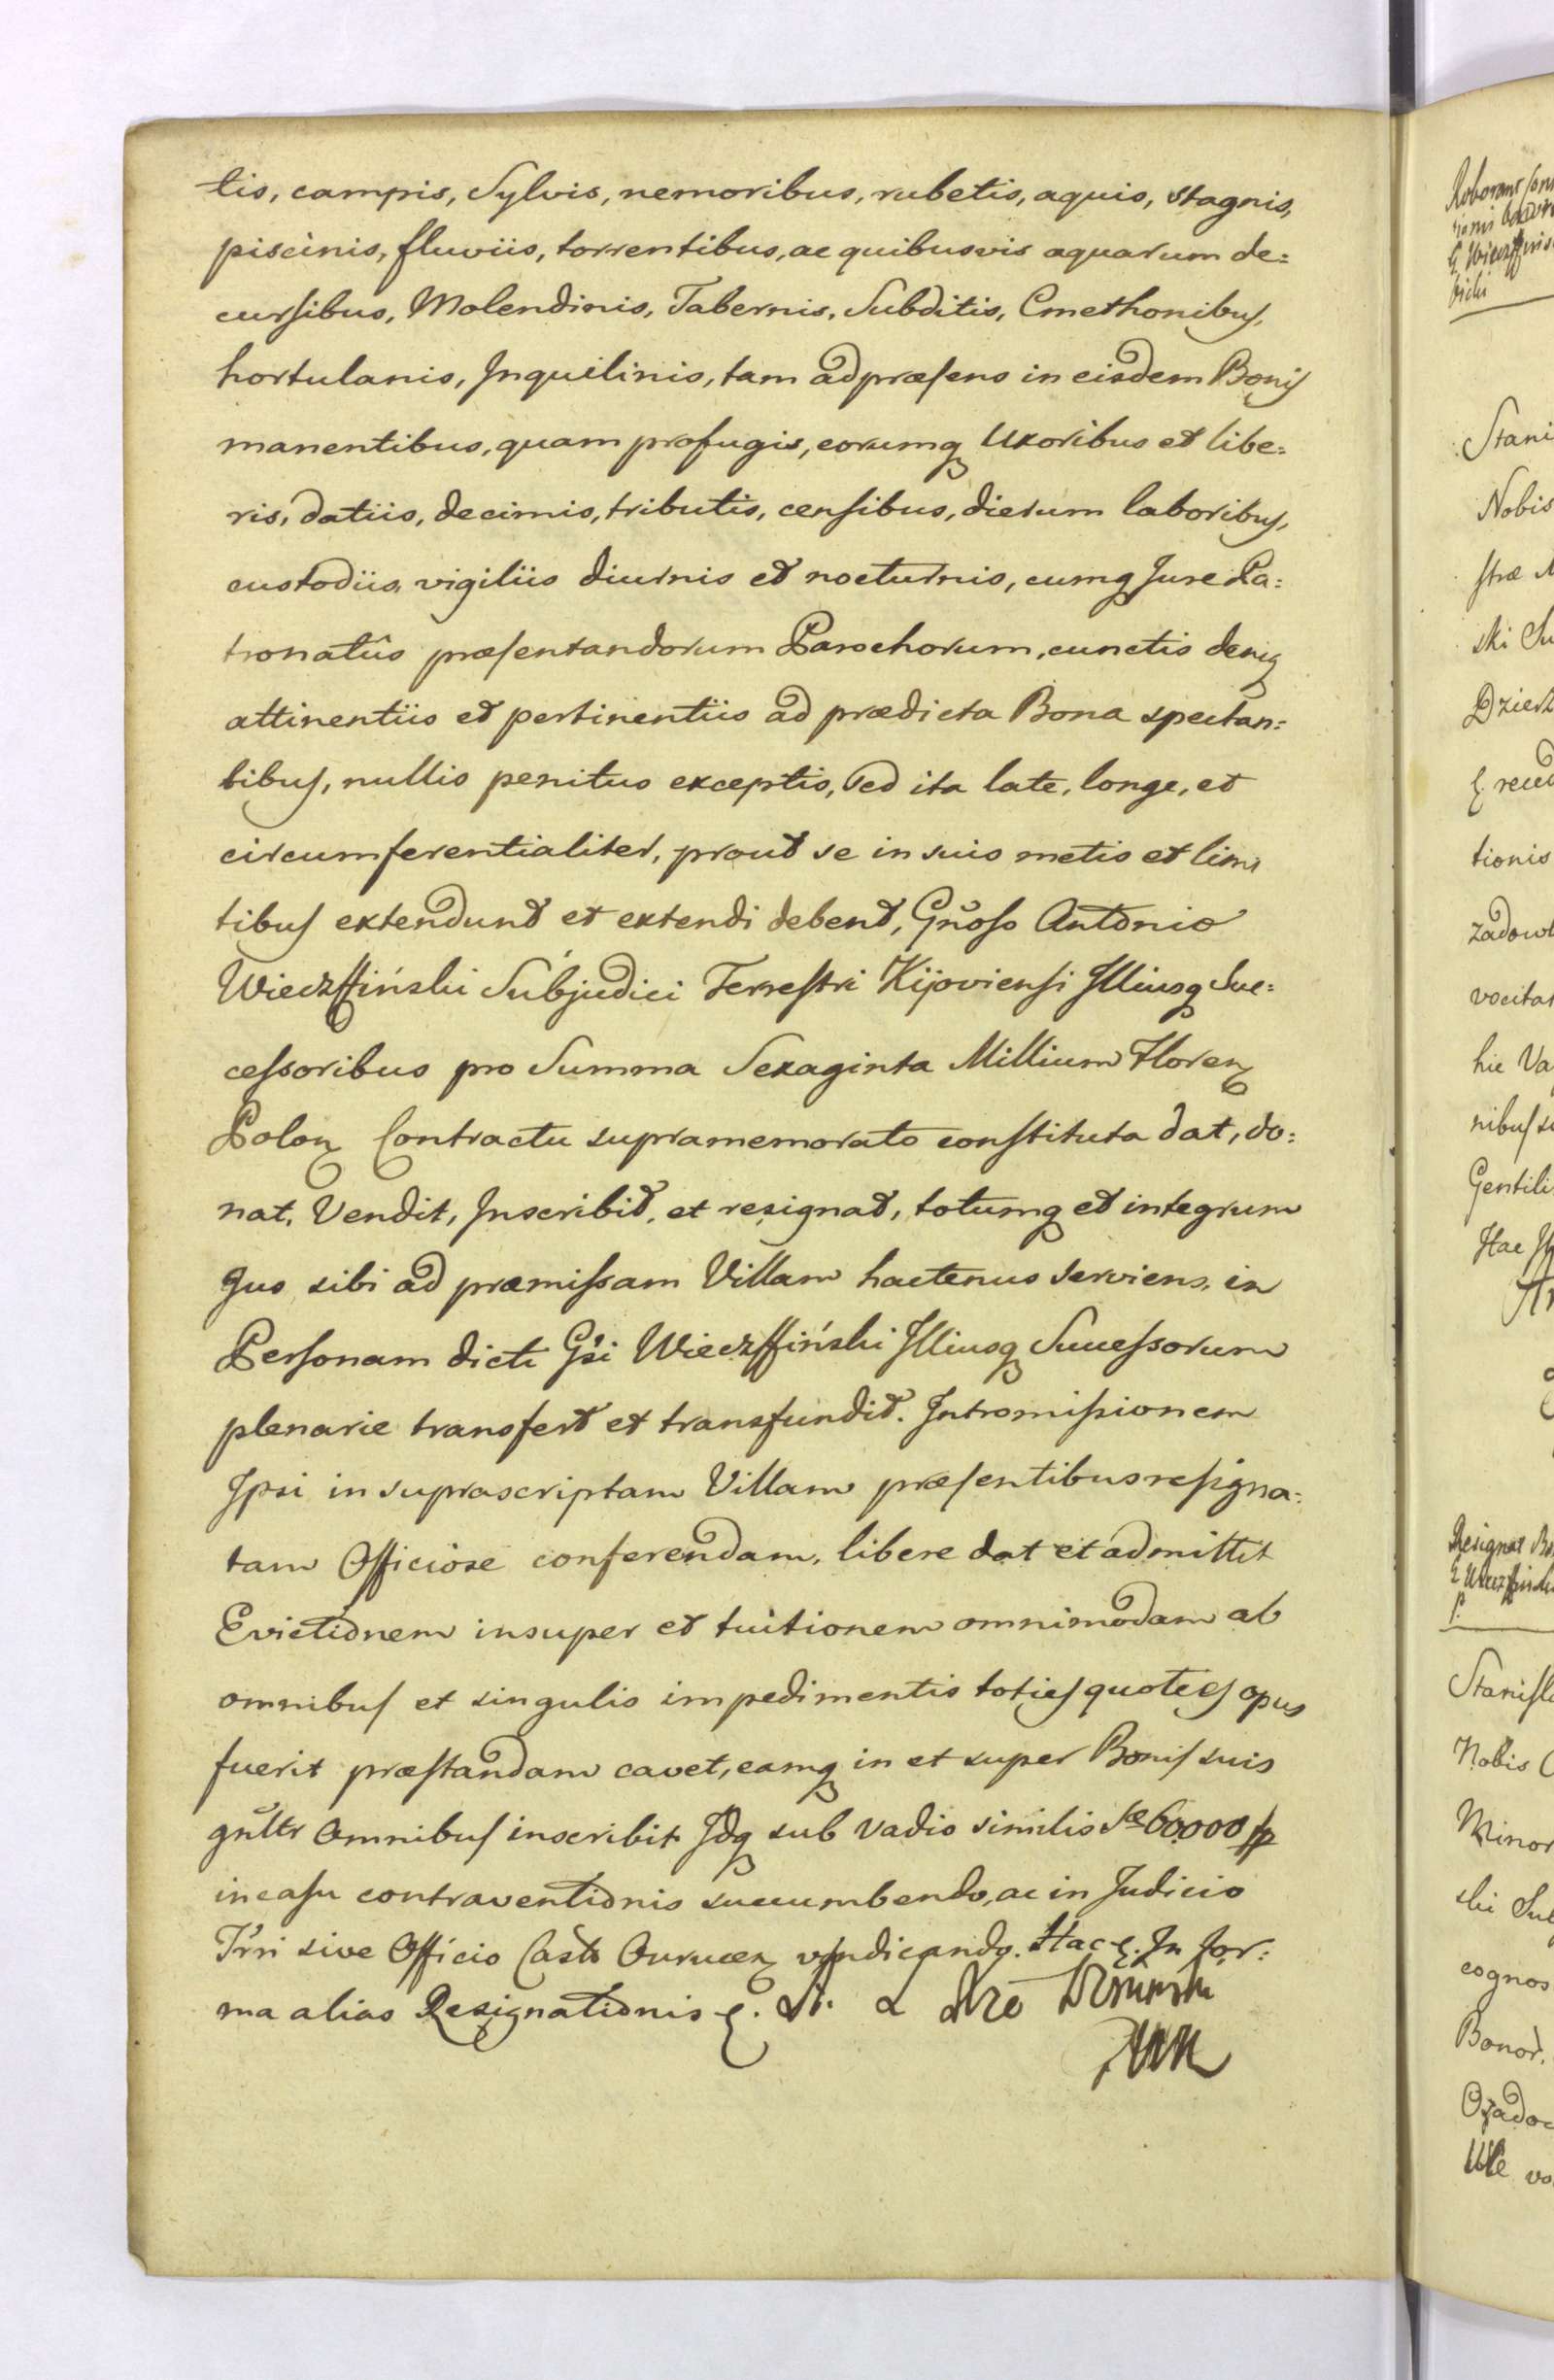 tis, campis, Sylvis, nemoribus, rubetis, aquis, stagnis,
piscinis, fluviis, torrentibus, ac quibusvis aquarum de=
cursibus, Molendinis, Tabernis, Subditis, Cmethonibus,
hortulanis, Inquilinis, tam ad præsens in eisdem Bonis
manentibus, quam profugis, eorumq Uxoribus et libe=
ris, datiis, decimis, tributis, censibus, dierum laboribus,
custodiis, vigiliis diurnis et nocturnis, cumq Jure Pa=
tronatûs præsentandorum Parochorum, cunctis deniq
attinentiis et pertinentiis ad prædicta Bona spectan=
tibus, nullis penitus exceptis, sed ita late, longe, et
circumferentialiter, prout se in suis metis et limi
tibus extendunt et extendi debent, Gnoso Antonio
Wieczffiński Subjudici Terrestri Kijoviensi Illiusq Suc=
cessoribus pro Summa Sexaginta Millium Floren
Polon Contractu supramemorato constituta dat, do=
nat, Vendit, Inscribit, et resignat, totumq et integrum
Jus sibi ad præmissam Villam hactenus serviens, in
Personam dicti Gsi Wieczffiński Illiusq Successorum
plenarie transfert et transfundit. Intromissionem
Ipsi in suprascriptam Villam præsentibus resigna=
tam Officiose conferendam, libere dat et admittit
Evictionem insuper et tuitionem omnimodam ab
omnibus et singulis impedimentis toties quoties opus
fuerit præstandam cavet, eamq in et super Bonis suis
gnltr Omnibus inscribit Idq sub vadio similis Sæ 60000 fp
in casu contraventionis succumbendo, ac in Judicio
Trri sive Officio Castr Ovrucen vindicando. Hac &. In for=
ma alias Resignationis &.
Roborans
Stani
Nobis
stræ
ski Su
Dzierz
& reced
tionis
zadowl
vocitat
hic Va
nibus su
Gentili
Hac
Resignat Bo
Stanisl
Nobis
Minor
ski Sub
cognos
Bonor.
Ozadow